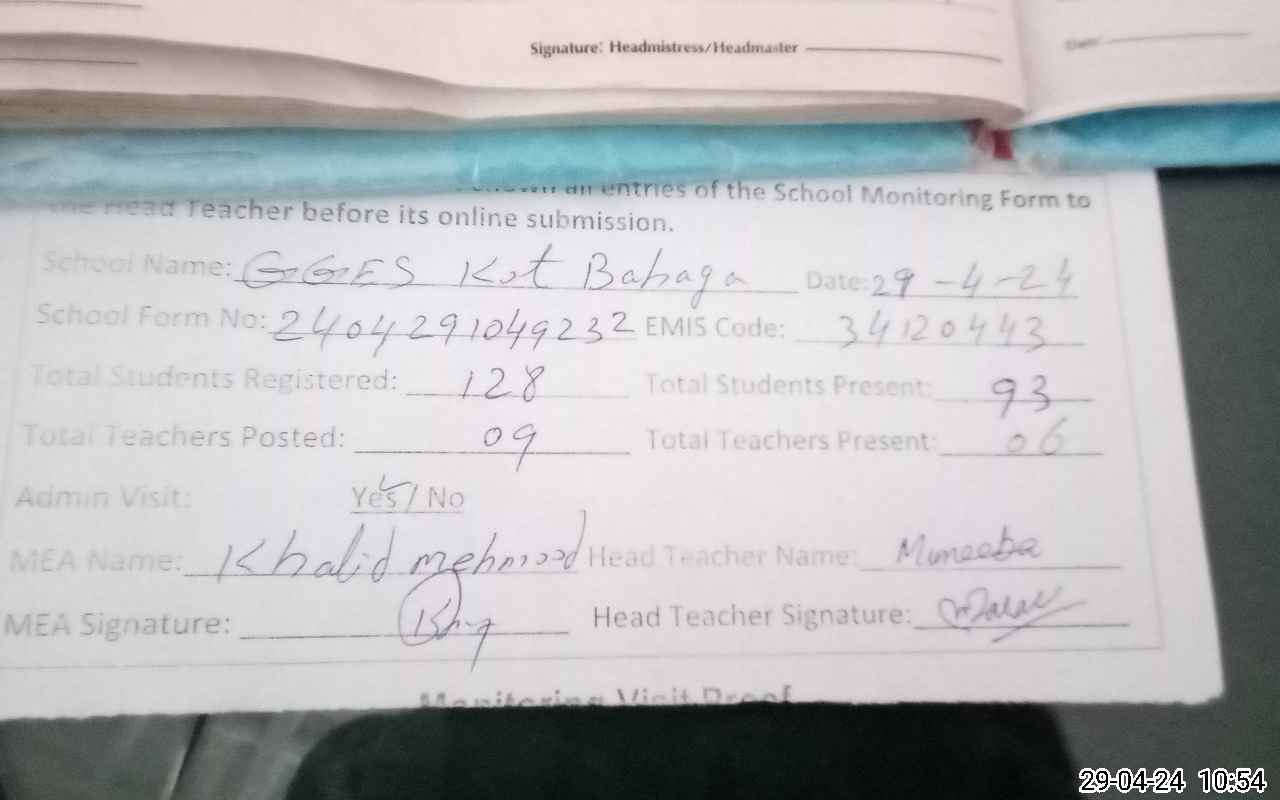 Signature: Headmistress/Headmaster
all entries of the School Monitoring Form to
the Head Teacher before its online submission.
School Name: GGES Kot Bahaga Date: 29-4-24
School Form No: 2404291049232 EMIS Code: 34120443
Total Students Registered: 128 Total Students Present: 93
Total Teachers Posted: 09 Total Teachers Present: 06
Admin Visit: Yes / No
MEA Name: Khalid mehmood Head Teacher Name: Muneeba
MEA Signature: Head Teacher Signature:
Monitoring Visit Proof
29-04-24 10:54